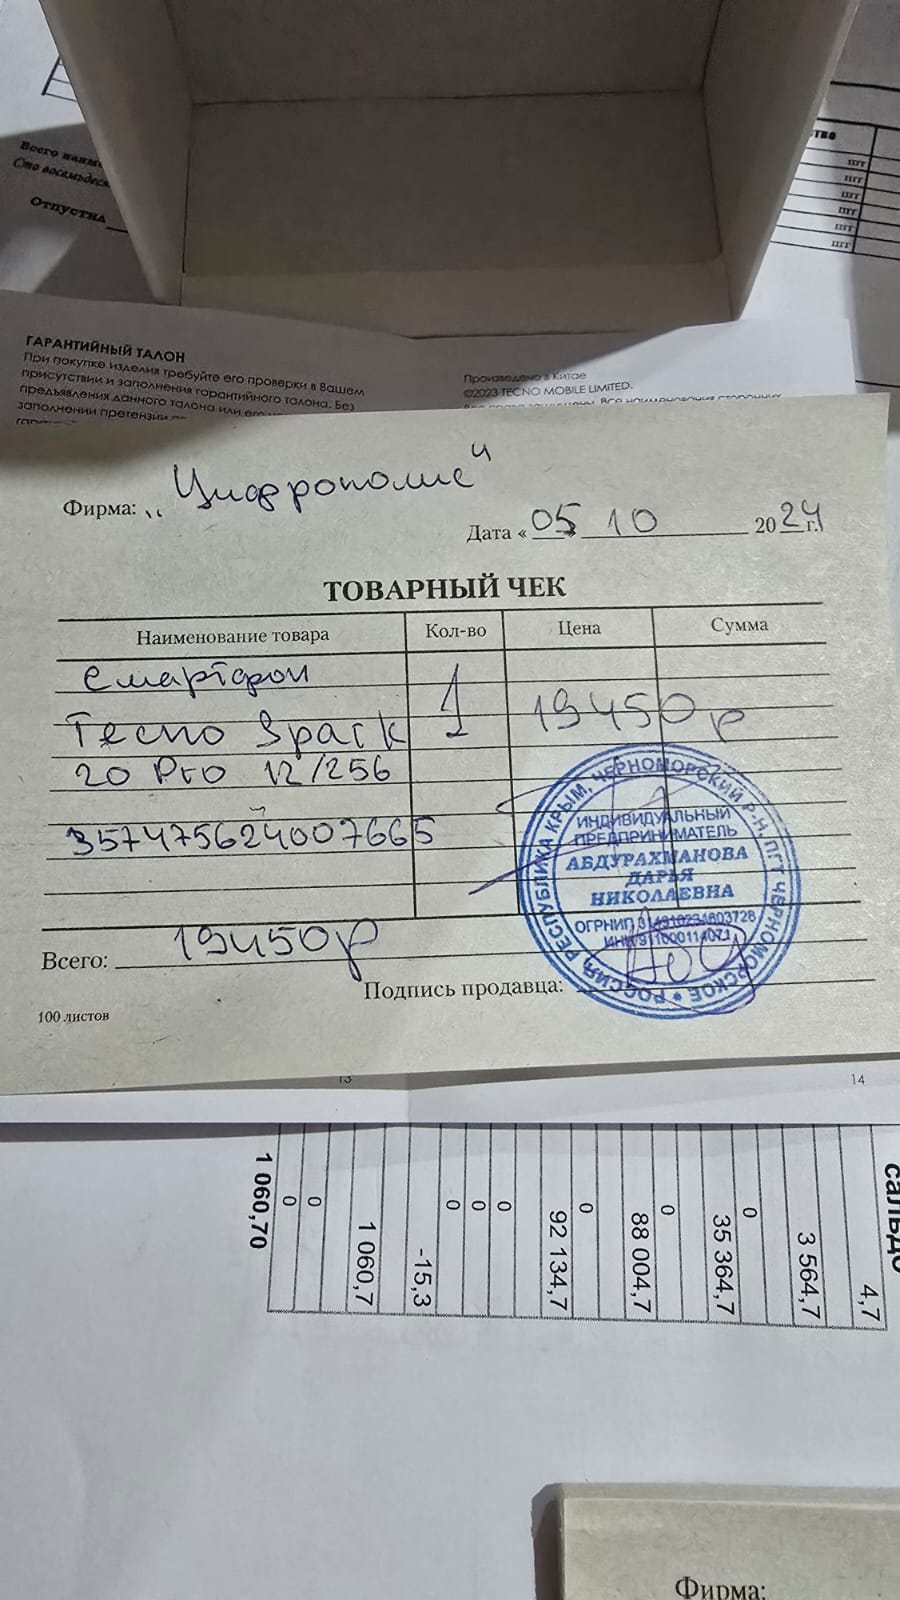 Всего наим
Сто восемьдеся
Отпустил
тво
шт
шт
шт
шт
шт
шт
ГАРАНТИЙНЫЙ ТАЛОН
При покупке изделия требуйте его проверки в Вашем
присутствии и заполнения гарантийного талона. Без
предъявления данного талона или его
заполнении претензии
Произведено в Китае
©2023 TECNO MOBILE LIMITED.
Все права защищены. Все наименования сторонних
Фирма: „Цифрополис"
Дата «05 10 2024 г.
ТОВАРНЫЙ ЧЕК
Наименование товара Кол-во Цена Сумма
Смартфон
Tecno Spark 1 19450 р
20 Pro 12/256
357475624007665
Всего: 19450р
Подпись продавца:
100 листов
РОССИЯ, РЕСПУБЛИКА КРЫМ, ЧЕРНОМОРСКИЙ Р-Н, ПГТ ЧЕРНОМОРСКОЕ
ИНДИВИДУАЛЬНЫЙ
ПРЕДПРИНИМАТЕЛЬ
АБДУРАХМАНОВА
ДАРЬЯ
НИКОЛАЕВНА
ОГРНИП
ИНН
13
14
сальдо
4,7
3 564,7
0
35 364,7
0
88 004,7
0
92 134,7
0
0
0
-15,3
1 060,7
0
0
1 060,70
Фирма: